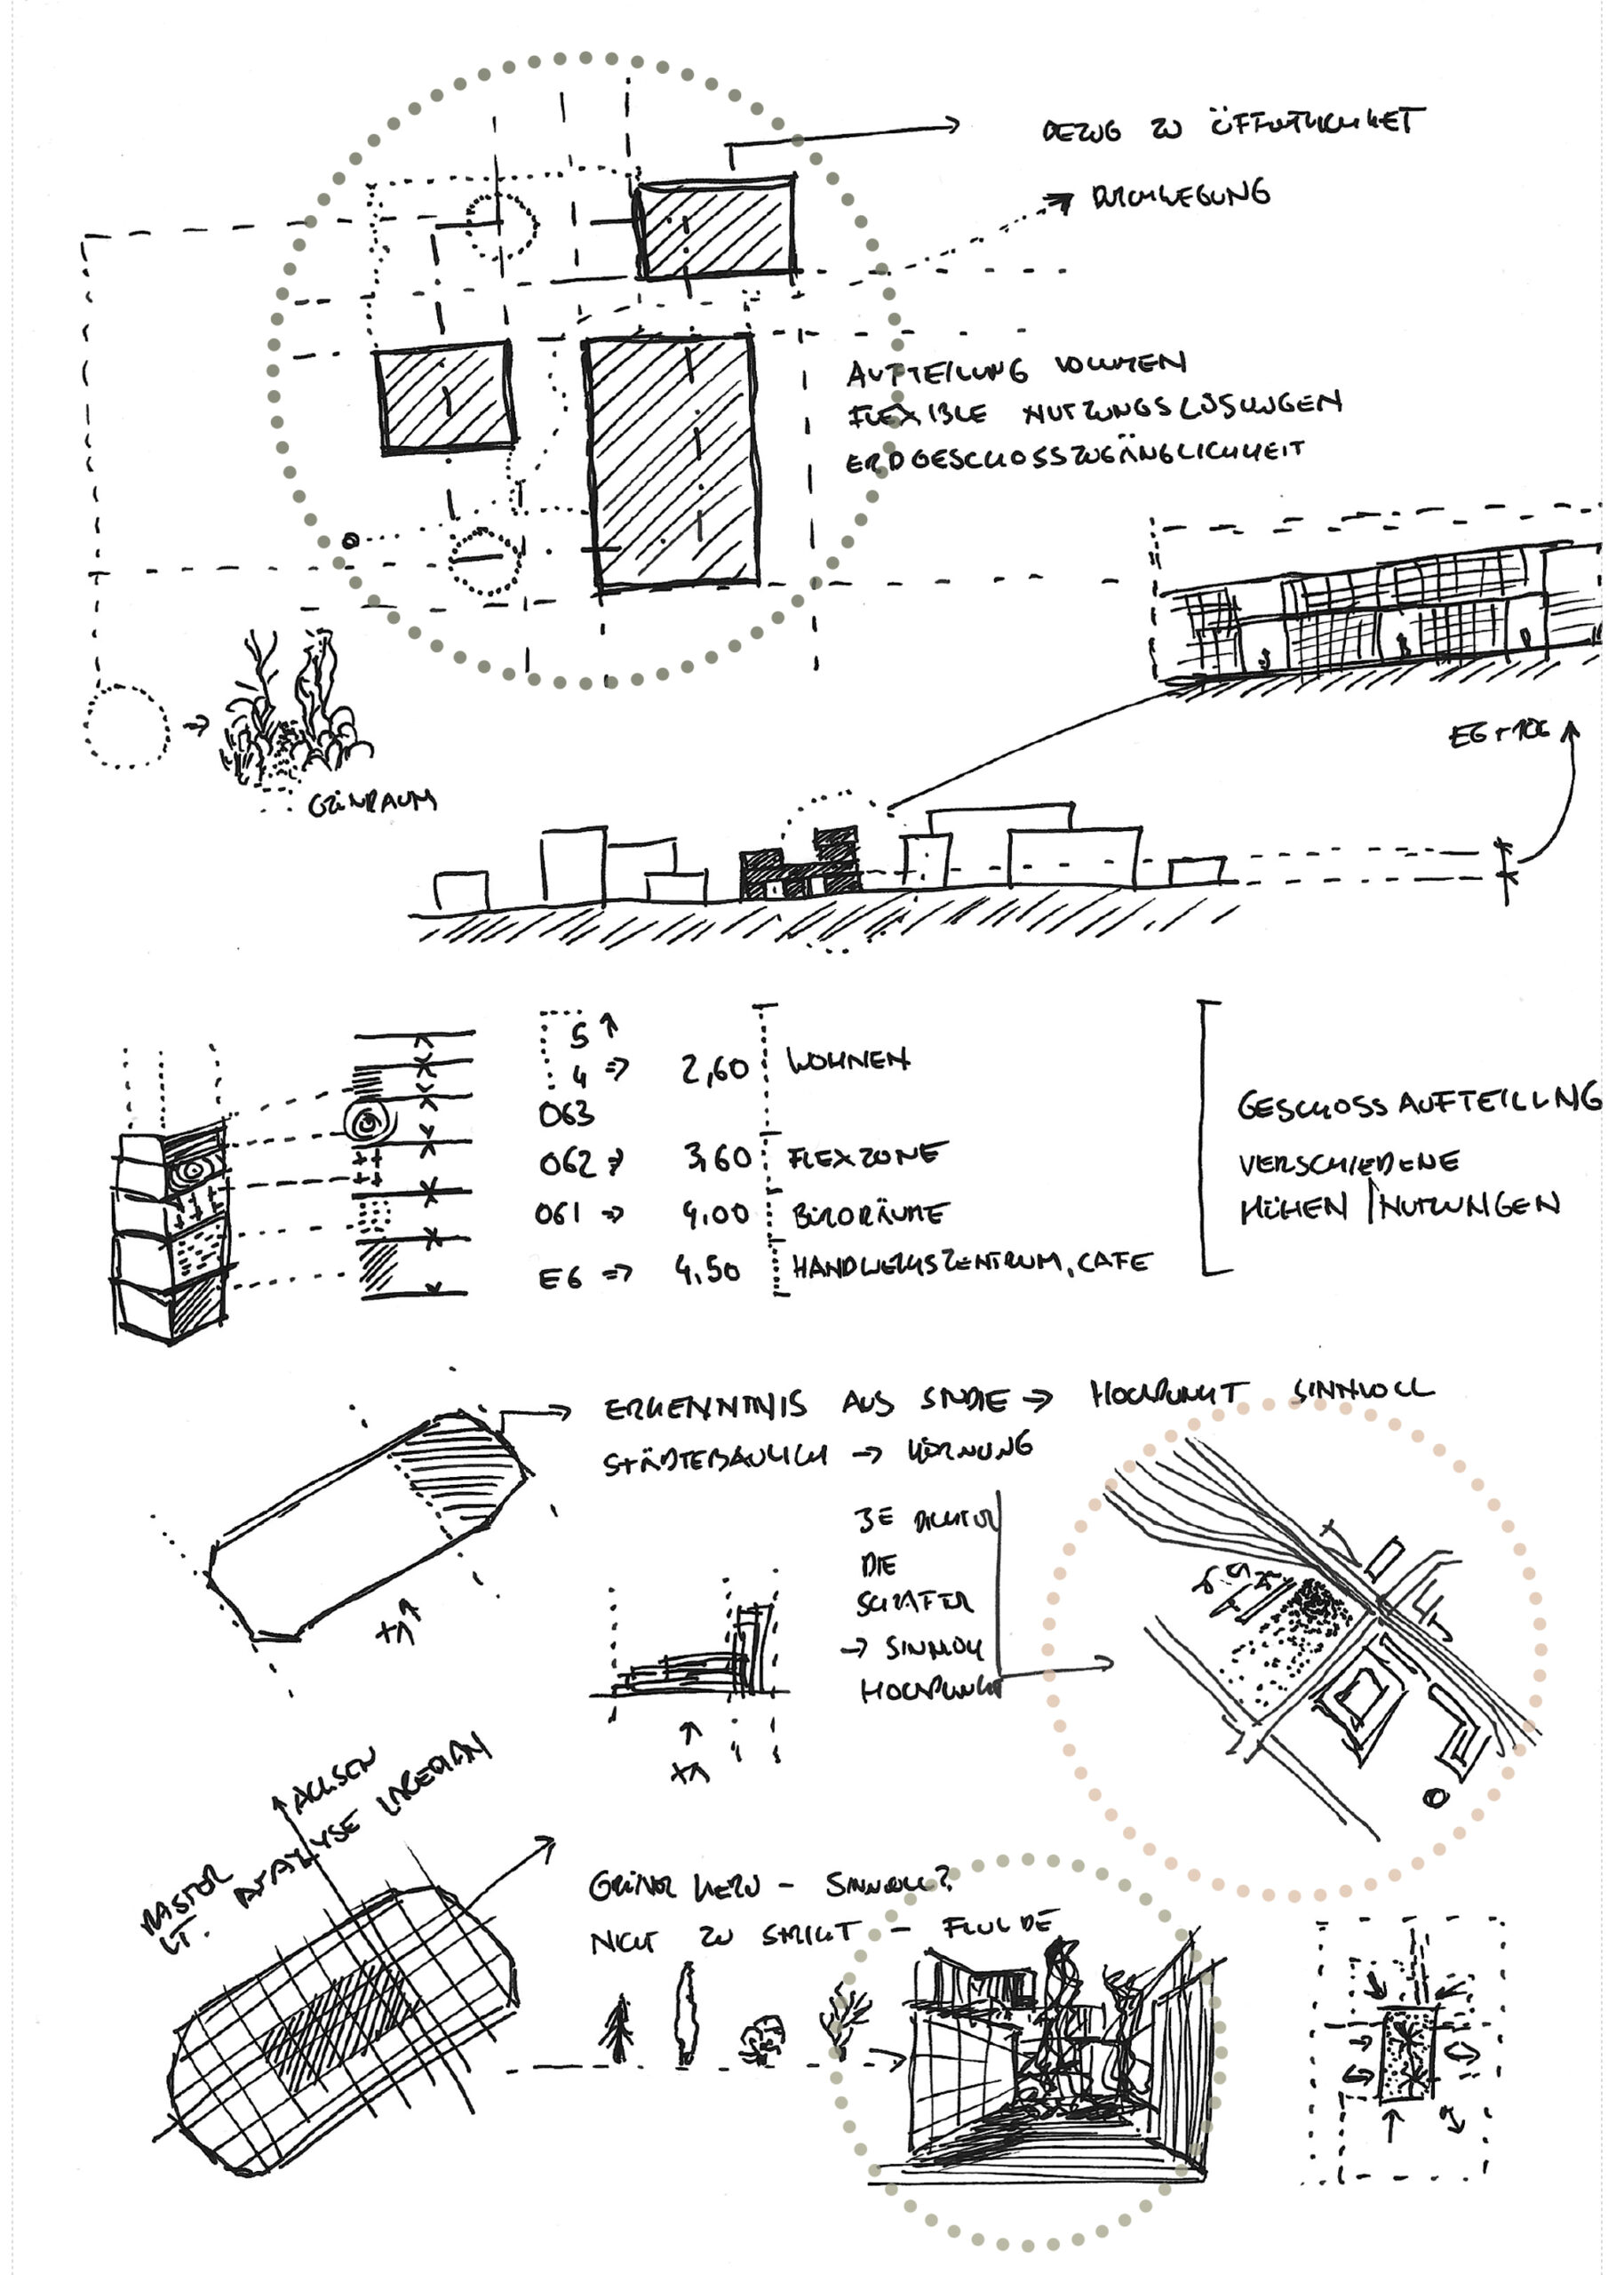 BEZUG ZU ÖFFENTLICHKEIT
DURCHWEGUNG
AUFTEILUNG VOLUMEN
FLEXIBLE NUTZUNGSLÖSUNGEN
ERDGESCHOSSZUGÄNGLICHKEIT
EG+1OG
GRÜNRAUM
5
4 => 2,60 WOHNEN
OG3
OG2 => 3,60 FLEXZONE
OG1 => 4,00 BÜRORÄUME
EG => 4,50 HANDWERKSZENTRUM, CAFE
GESCHOSSAUFTEILUNG
VERSCHIEDENE
HÖHEN / NUTZUNGEN
ERKENNTNIS AUS STUDIE → HOCHPUNKT SINNVOLL
STÄDTEBAULICH → KÖRNUNG
JE DICHTER
DIE
SCHRAFFUR
→ SINNVOLL
HOCHPUNKT
ACHSEN
RASTER
LT. ANALYSE LAGEPLAN
GRÜNER KERN - SINNVOLL?
NICHT ZU STRIKT - FLUIDE